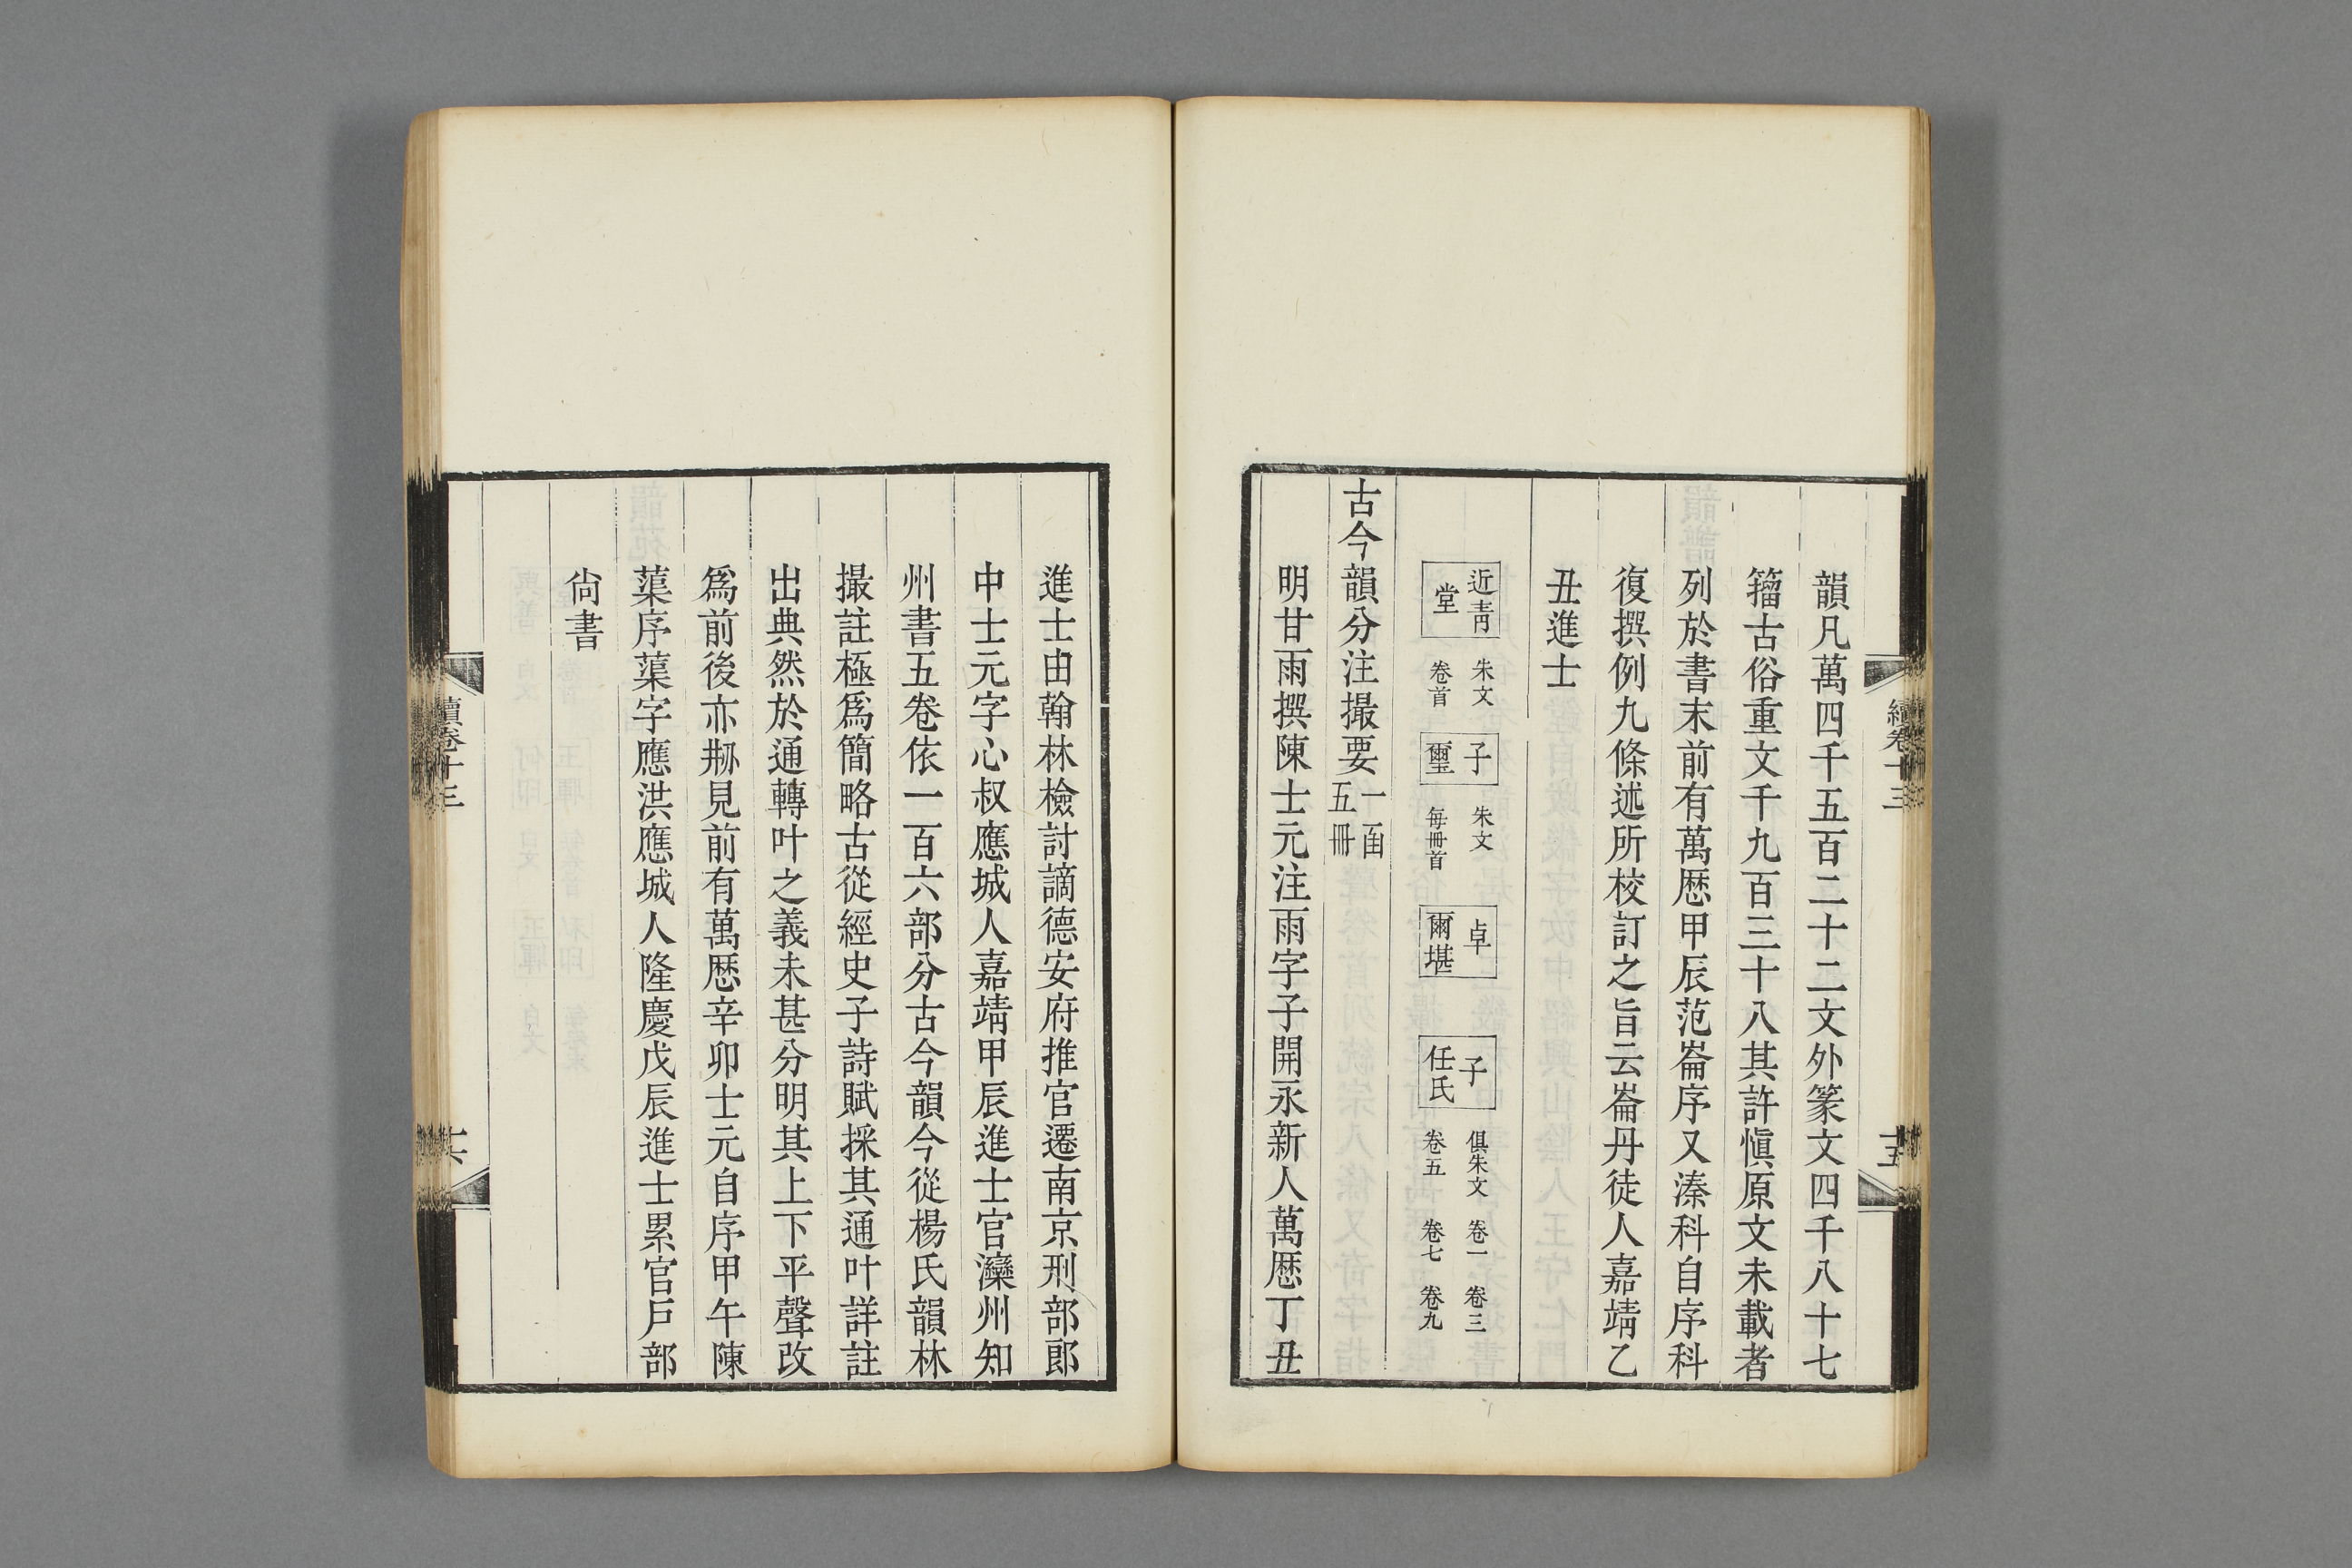 續卷十三
十五
韻凡萬四千五百二十二文外篆文四千八十七
籀古俗重文千九百三十八其許愼原文未載者
列於書末前有萬厯甲辰范崙序又溱科自序科
復撰例九條述所校訂之旨云崙丹徒人嘉靖乙
丑進士
近靑堂 朱文 卷首 子璽 朱文 每冊首 卓爾堪 子任氏 俱朱文 卷一 卷三 卷五 卷七 卷九
古今韻分注撮要 一函五冊
明甘雨撰陳士元注雨字子開永新人萬厯丁丑
進士由翰林檢討謫德安府推官遷南京刑部郎
中士元字心叔應城人嘉靖甲辰進士官灤州知
州書五卷依一百六部分古今韻今從楊氏韻林
撮註極爲簡略古從經史子詩賦採其通叶詳註
出典然於通轉叶之義未甚分明其上下平聲改
爲前後亦刱見前有萬厯辛卯士元自序甲午陳
蕖序蕖字應洪應城人隆慶戊辰進士累官戶部
尙書
續卷十三
十六